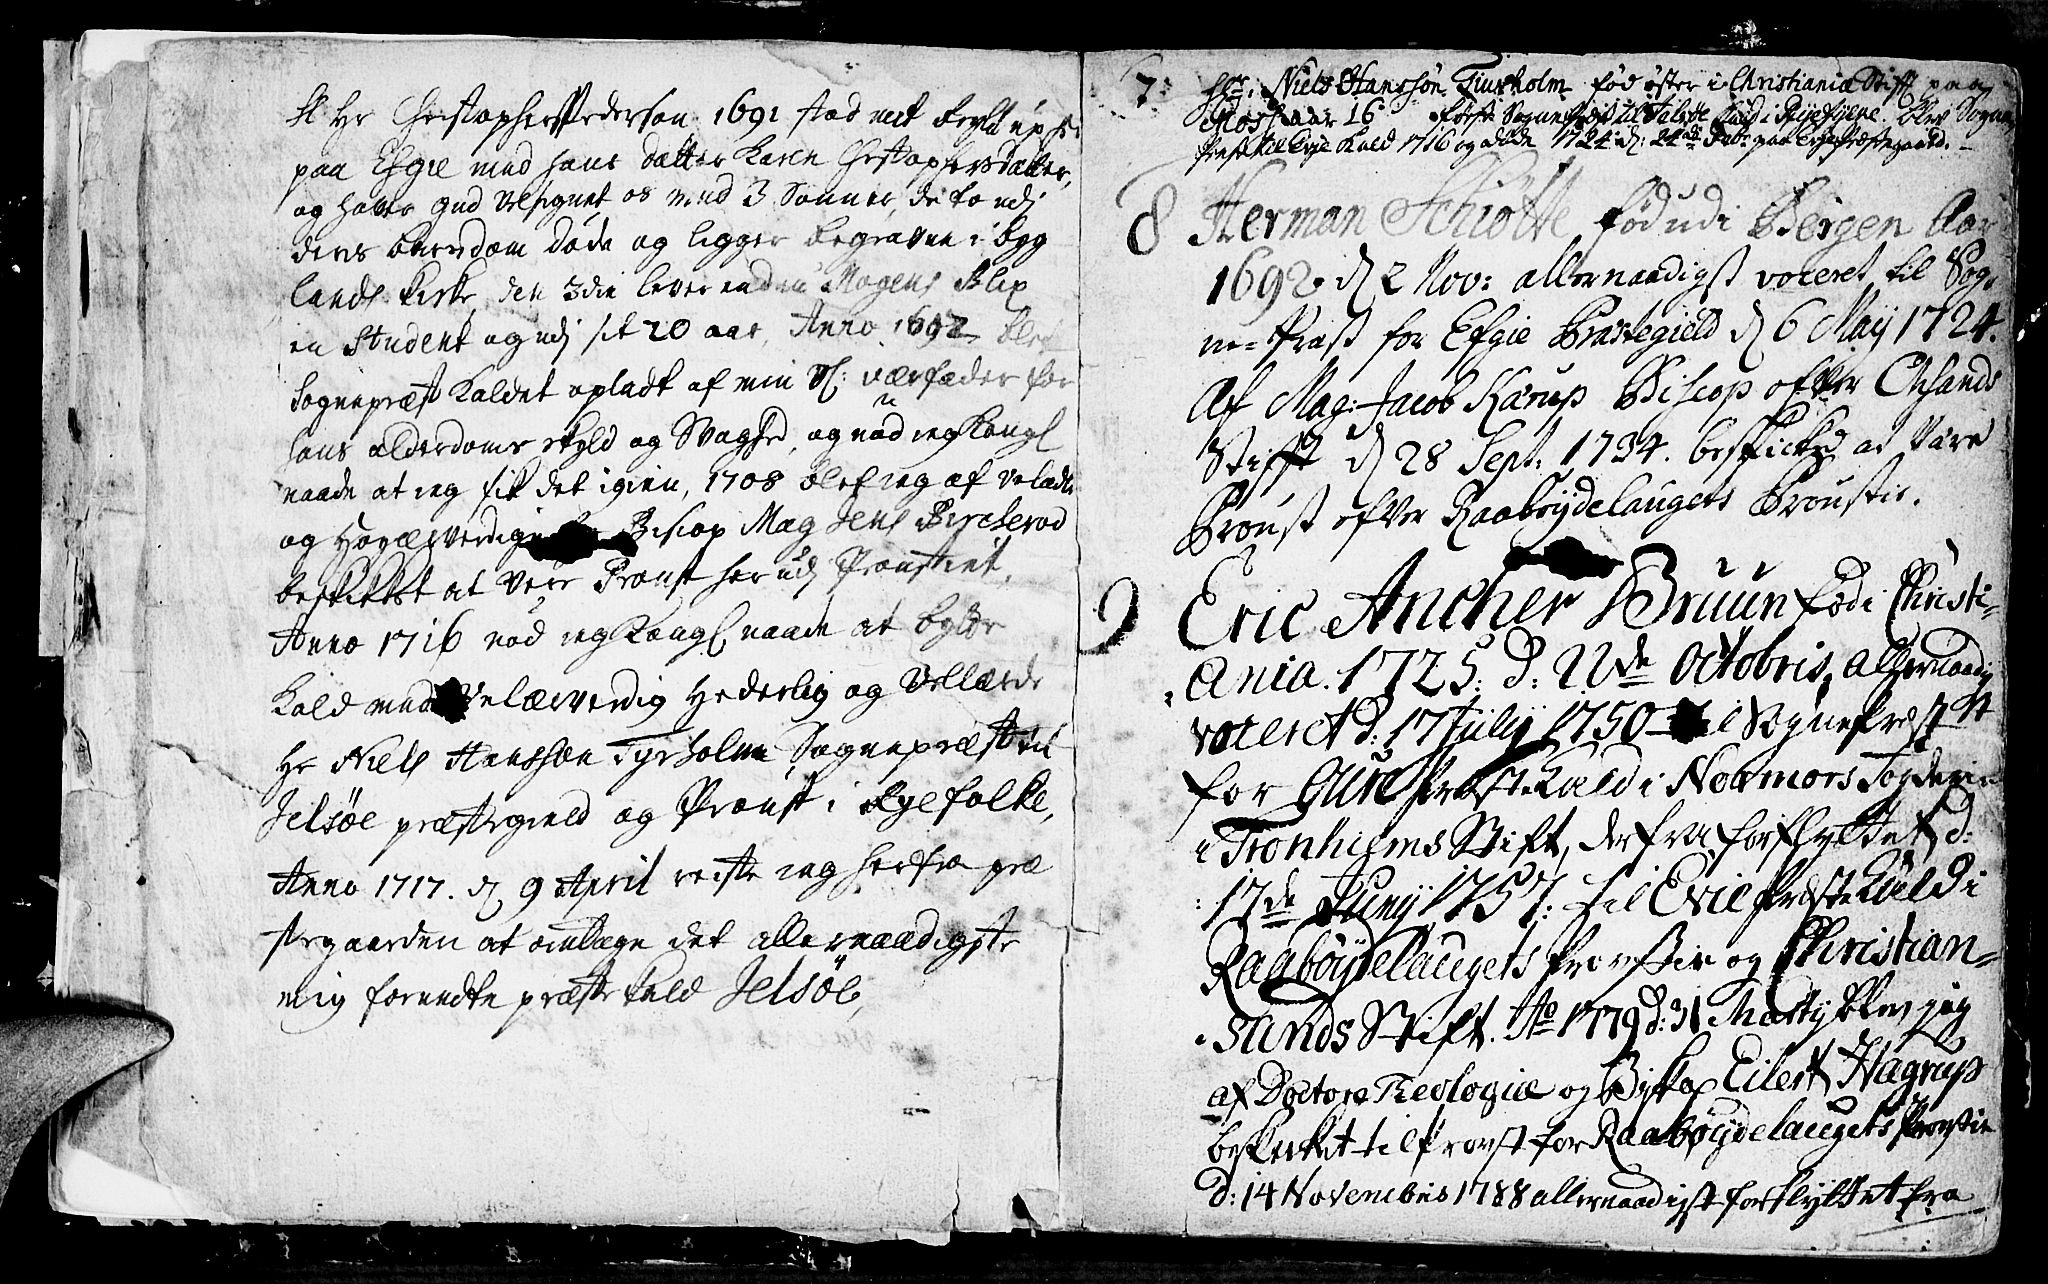 Sl Hr Christopher Pedersøn 1691 stod mit bryllup
paa Efgie med hans datter Karen Christophersdatter,
og haver gud velsignet os med 3 Sønner, de to udj
deres barndom døde og ligger begravne i Byg
lands kirke, den 3die lever endnu Mogens Blix
en Student og udj sit 20 aar, Anno 1692 blef
Sognepræst Kaldet opladt af min Sl: værfader for
hans alderdoms skyld og Svaghed, og nød ieg Kongl
naade at ieg fik det igien, 1708 blef ieg af velædle
og Høyærverdige Biscop Mag Jens Bircherod
beskikket at være Proust her udj Proustiet,
Anno 1716 nød ieg Kongl naade at bytte
Kald med Velærverdig Hæderlig og Vellærde
Hr Niels Hanssøn Tyrholm Sognepræst til
Jelsøe præstegield og Proust i Ryefølke,
Anno 1717. d 9 April reiste ieg herfra præ
stegaarden at antage det allernaadigste
mig forundte præstekald Jelsöe,
7. Hr: Niels Hanssøn Tiurholm fød øster i Christiania Stift paa
Moss aar 16 først Sognepræst til Jelsøe Kald i Ryefylke. Blev Sogne
Præst til Evje Kald 1716 og døde 1724 d: 24de Febr: paa Evje Præstegaard.
8 Herman Schiøtte fød udi Bergen Aar
1692 d 2 Nov: allernaadigst voceret til Sog-
ne-Præst for Efgie Præstegield d 6 Maij 1724.
Af Mag: Jacob Kærup Biscop ofver Chsands
Stifft d 28 Sept: 1734. beskicked at være
Proust ofver Raabøydelaugets Proustie.
9 Eric Ancher Bruun fød i Christi-
ania. 1725. d: 22de Octobris, allernaadig
voceret d: 17 Julij 1750 til Sognepræst
for Aure Præste Kald i Nordmørs Fogderie
i Tronhiems Stift, derfra forflyttet d:
17de Junij 1757: til Evie Præste Kald i
Raabøydelaugets Provstie og Christian-
sands Stift. Ao 1779 d: 31 Martij blev jeg
af Doctore Theologiæ og Biskop Eilert Hagrup
beskicket til Provst for Raabøydelaugets Provstie
d: 14 Novembris 1788 allernaadigst forflyttet fra